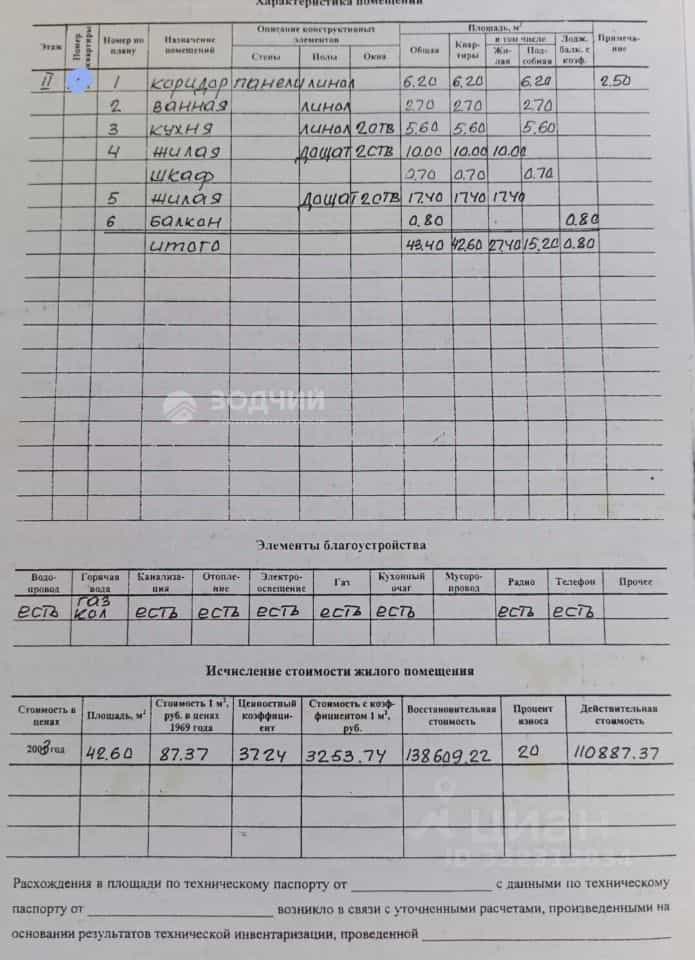 Характеристика помещений
Этаж | Номер квартиры | Номер по плану | Назначение помещений | Описание конструктивных элементов | Площадь, м² | Лодж. балк. с коэф. | Примечание
Стены | Полы | Окна | Общая | Квартиры | в том числе
Жилая | Подсобная
II | 1 | коридор | панели | линол | 6.20 | 6.20 | 6.20 | 2.50
2 | ванная | линол | 2.70 | 2.70 | 2.70
3 | кухня | линол | 2отв | 5.60 | 5.60 | 5.60
4 | жилая | дощат | 2ств | 10.00 | 10.00 | 10.00
шкаф | 0.70 | 0.70 | 0.70
5 | жилая | дощат | 2отв | 17.40 | 17.40 | 17.40
6 | балкон | 0.80 | 0.80
итого | 43.40 | 42.60 | 27.40 | 15.20 | 0.80
ЗОДЧИЙ
Элементы благоустройства
Водопровод | Горячая вода | Канализация | Отопление | Электроосвещение | Газ | Кухонный очаг | Мусоропровод | Радио | Телефон | Прочее
есть | газ кол | есть | есть | есть | есть | есть | есть | есть
Исчисление стоимости жилого помещения
Стоимость в ценах | Площадь, м² | Стоимость 1 м², руб. в ценах 1969 года | Ценностный коэффициент | Стоимость с коэффициентом 1 м², руб. | Восстановительная стоимость | Процент износа | Действительная стоимость
2003 год | 42.60 | 87.37 | 37.24 | 3253.74 | 138609.22 | 20 | 110887.37
ЦИАН
Расхождения в площади по техническому паспорту от ____ с данными по техническому
паспорту от ____ возникло в связи с уточненными расчетами, произведенными на
основании результатов технической инвентаризации, проведенной ____